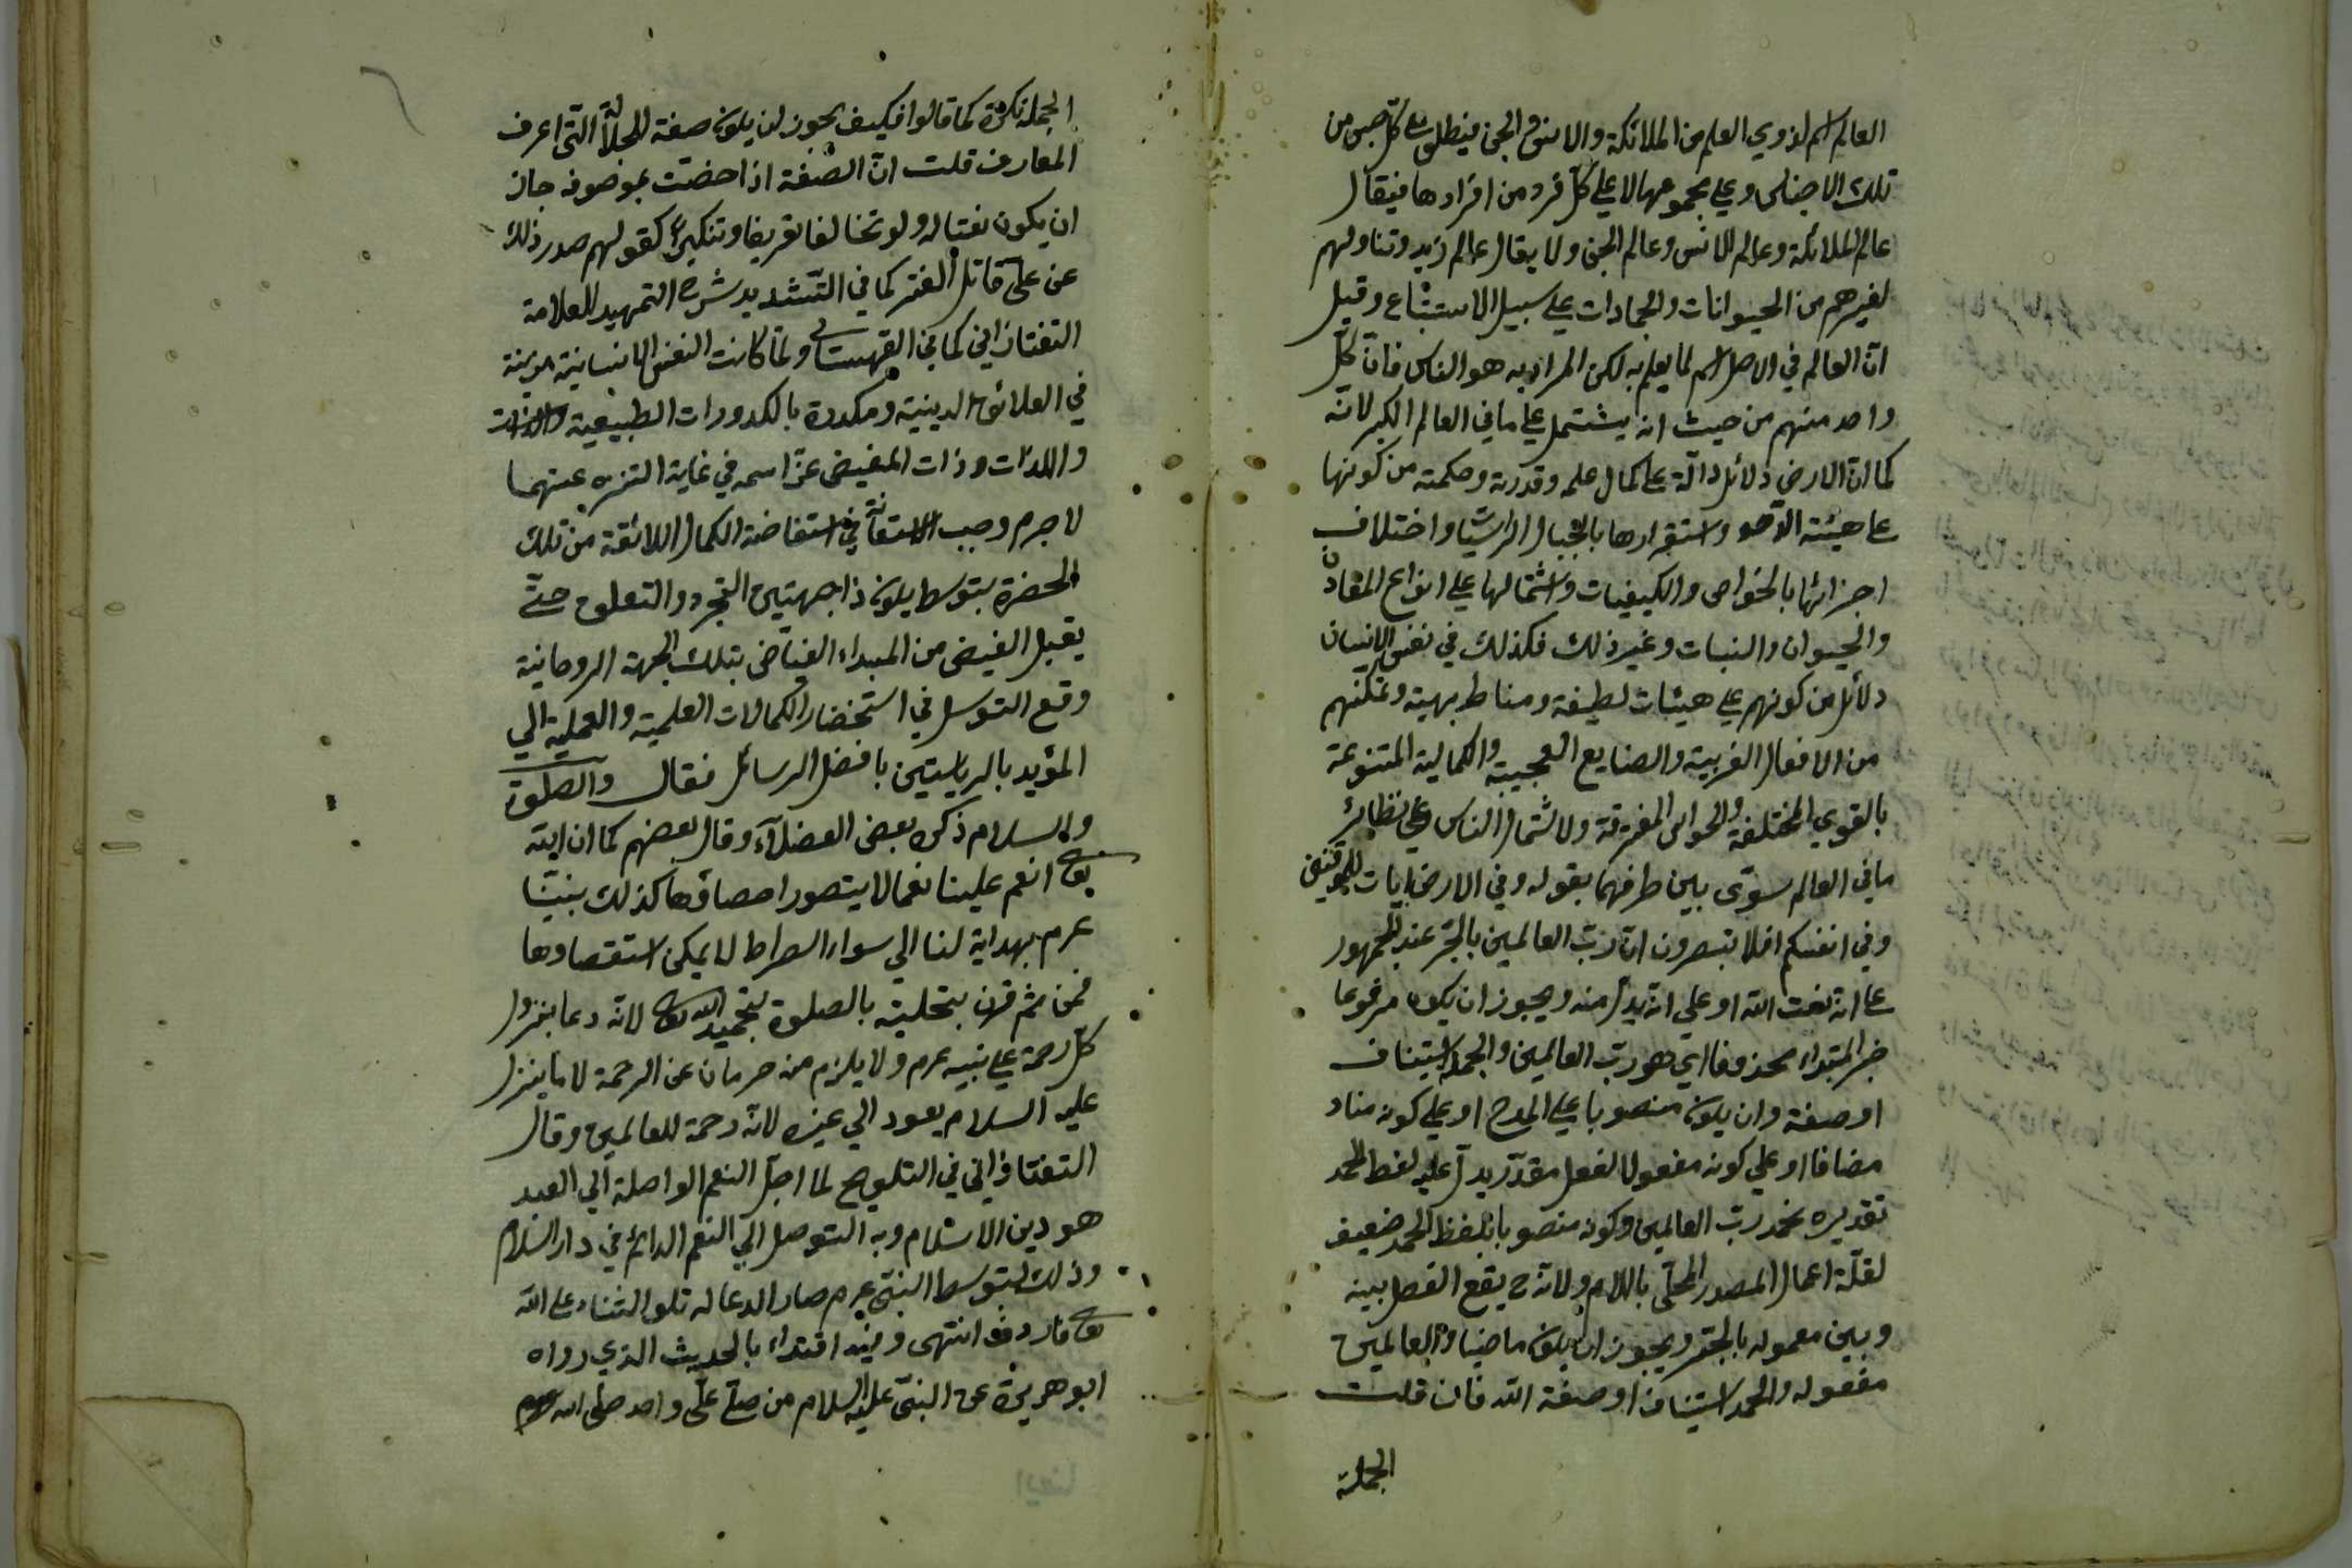 العالم اسم لذوي العلم من الملائكة والانس والجن فيطلق على كل جنس من
تلك الاجناس وعلي مجموعها لا علي كل فرد من افرادها فيقال
عالم الملائكة وعالم الانس وعالم الجن ولا يقال عالم زيد وتناولهم
لغيرهم من الحيوانات والجمادات علي سبيل الاستتباع وقيل
ان العالم في الاصل اسم لما يعلم به لكن المراد به هو الناس فان كل
واحد منهم من حيث انه يشتمل علي ما في العالم الكبر لانه
كما ان الارض دلائل دالة على كمال علمه وقدرته وحكمته من كونها
على هيئة واستقرارها بالجبال الراسيا واختلاف
اجزائها بالخواص والكيفيات واشتمالها علي انواع المعادن
والحيوان والنبات وغير ذلك فكذلك في نفس الانسان
دلائل من كونهم علي هيئات لطيفة ومناظر بهية وتمكنهم
من الافعال الغريبة والصنايع العجيبة والكمالية المتنوعة
بالقوي المختلفة والحواس المفرقة ولاشتمال الناس علي نظائر
ما في العالم سوّى بين طرفهما بقوله وفي الارض ايات للموقنين
وفي انفسكم افلا تبصرون ان رب العالمين بالجر عند الجمهور
على انه نعت الله او علي انه بدل منه ويجوز ان يكون مرفوعا
خبر المبتداء محذوفا اي هو رب العالمين والجملة استيناف
او صفة وان يكون منصوبا علي المدح او علي كونه مناد
مضافا او علي كونه مفعولا لفعل مقدر يدل عليه لفظ الحمد
تقديره نحمد رب العالمين وكونه منصوبا بلفظ الحمد ضعيف
لقلة اعمال المصدر المحلّى باللام ولانه ح يقع الفصل بينه
وبين معموله بالجر ويجوز ان يكون ماضيا والعالمين
مفعوله والحمد استيناف او صفة الله فان قلت
الجملة
الجملة نكرة كما قالوا فكيف يجوز ان يكون صفة للجلالة التي اعرف
المعارف قلت ان الصفة اذا خصت بموصوف جاز
ان يكون نعتا له ولو تخالفا تعريفا وتنكيرا كقولهم صدر ذلك
عن علي قاتل كما في التشديد شرح التمهيد للعلامة
التفتازاني كما في القهستاني ولما كانت النفس الانسانية
في العلائق الدينية ومكدرة بالكدورات الطبيعية
واللذات وذات المفيض عز اسمه في غاية التنزه عنهما
لا جرم وجب الاستعانة في استفاضة الكمال اللائقة من تلك
الحضرة بتوسط يكون ذا جهتين التجرد والتعلق حتّى
يقبل الفيض من المبداء الفياض بتلك الجهة الروحانية
وقع التوسل في استحضار الكمالات العلمية والعملية الي
المؤيد بالرياستين بافضل الرسائل فقال والصلوة
والسلام ذكره بعض الفضلاء وقال بعضهم كما ان الله
تعالى انعم علينا نعما لا يتصور احصاؤها كذلك نبينا
عرم بهداية لنا الي سواء الصراط لا يمكن استقصاوها
فمن ثم قرن بتحليته بالصلوة بتحميد الله تعالى لانه دعا بنزول
كل رحمة علي نبيه عرم ولا يلزم منه حرمان عن الرحمة لا ما ينزل
عليه السلام يعود الي غيره لانه رحمة للعالمين وقال
التفتازاني في التلويح لما اجل النعم الواصلة الي العبد
هو دين الاسلام وبه التوصل الي النعم الدائم في دار السلام
وذلك بتوسط النبي عرم صار الدعا له تلو الثناء على الله
تعالى فاردف انتهى وفيه اقتداء بالحديث الذي رواه
ابو هريرة عن النبي عليه السلام من صلى علي واحد صلى الله